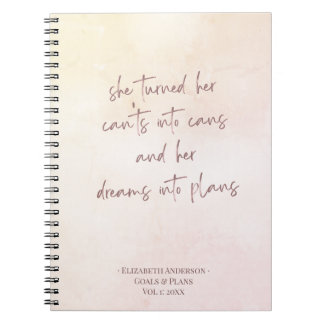 she turned her
can'ts into cans
and her
dreams into plans
· Elizabeth Anderson ·
Goals & Plans
Vol 1: 20XX